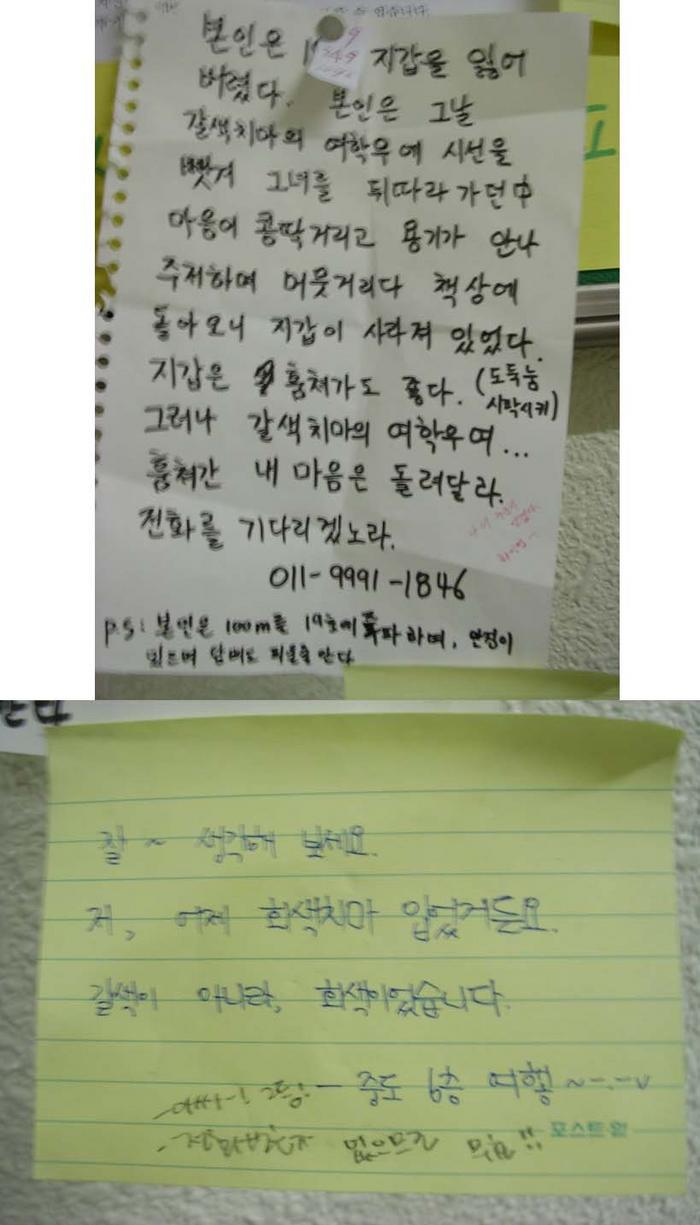 본인은 지갑을 잃어
버렸다. 본인은 그날
갈색치마의 여학우에 시선을
뺏겨 그녀를 뒤따라 가던中
마음이 콩딱거리고 용기가 안나
주저하며 머뭇거리다 책상에
돌아오니 지갑이 사라져 있었다.
지갑은 훔쳐가도 좋다. (도둑놈
시락시키)
그러나 갈색치마의 여학우여...
훔쳐간 내 마음은 돌려달라.
전화를 기다리겠노라.
011-9991-1846
P.S: 본인은 100m를 19초에 주파하며, 안정이
있으며 담배도 피울줄 안다
안다
잘~ 생각해 보세요.
저, 어제 회색치마 입었거든요.
갈색이 아니라, 회색이었습니다.
- 중도 6층 여행 ~-.-v
아싸-! 2등!
없으므로 무효!!
포스트-잇